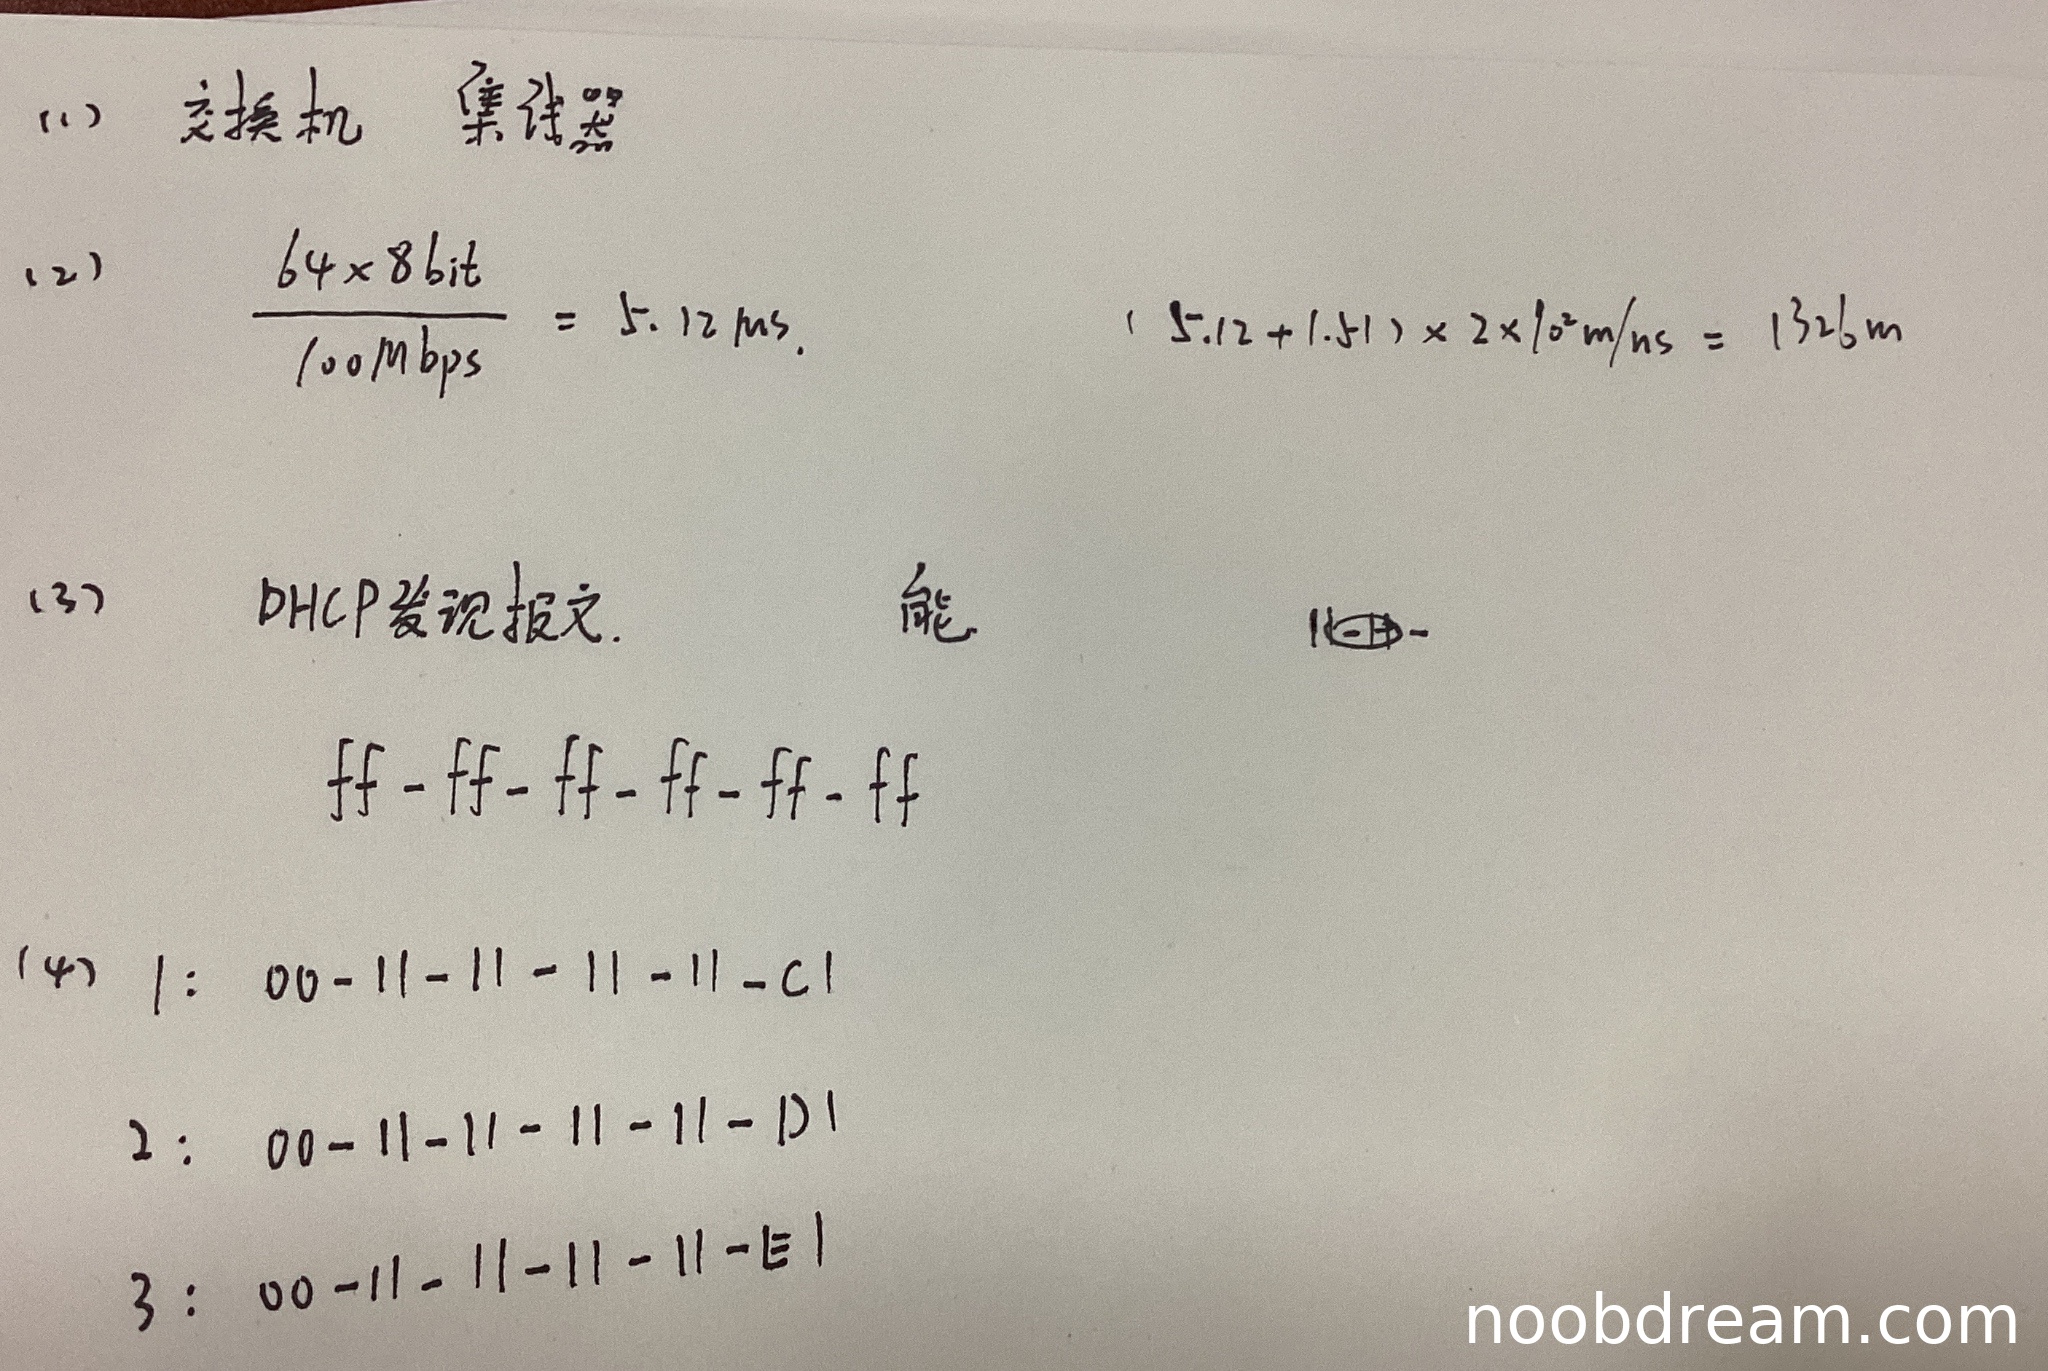 (1) 交换机 集线器
(2) 64×8bit / 100Mbps = 5.12 ms. (5.12+1.51)×2×10²m/ns = 1326m
(3) DHCP发现报文. 能
ff-ff-ff-ff-ff-ff
(4) 1: 00-11-11-11-11-C1
2: 00-11-11-11-11-D1
3: 00-11-11-11-11-E1
noobdream.com